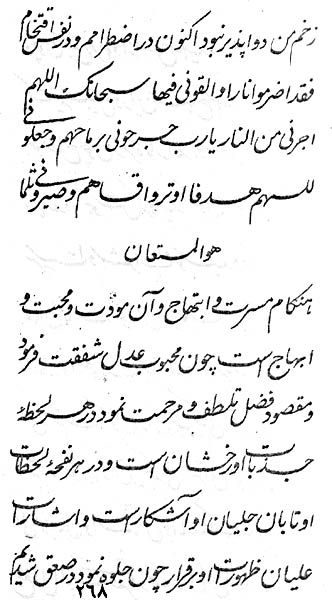 زخم من دوا پذیر نبود اکنون در اضطرامم و در نفس اقتحام
فقد اضرموا نارا و القونی فیها سبحانک اللهم
اجرنی من النار یا رب جرحونی برماحهم و جعلونی
للسهم هدفا او ترواقاهم و صیرونی مثلما
هو المستعان
هنگام مسرت و ابتهاج و آن مودت و محبت و
ابهاج است چون محبوب عدل شفقت فرمود
و مقصود فضل تلطف و مرحمت نمود در هر لحظهٔ
جذبات او رخشان است و در هر نفحهٔ لحظات
او تابان جلیان او آشکار است و اشارات
علیان ظهورات او برقرار چون جلوه نمود در صعق شدیم
۲۶۸